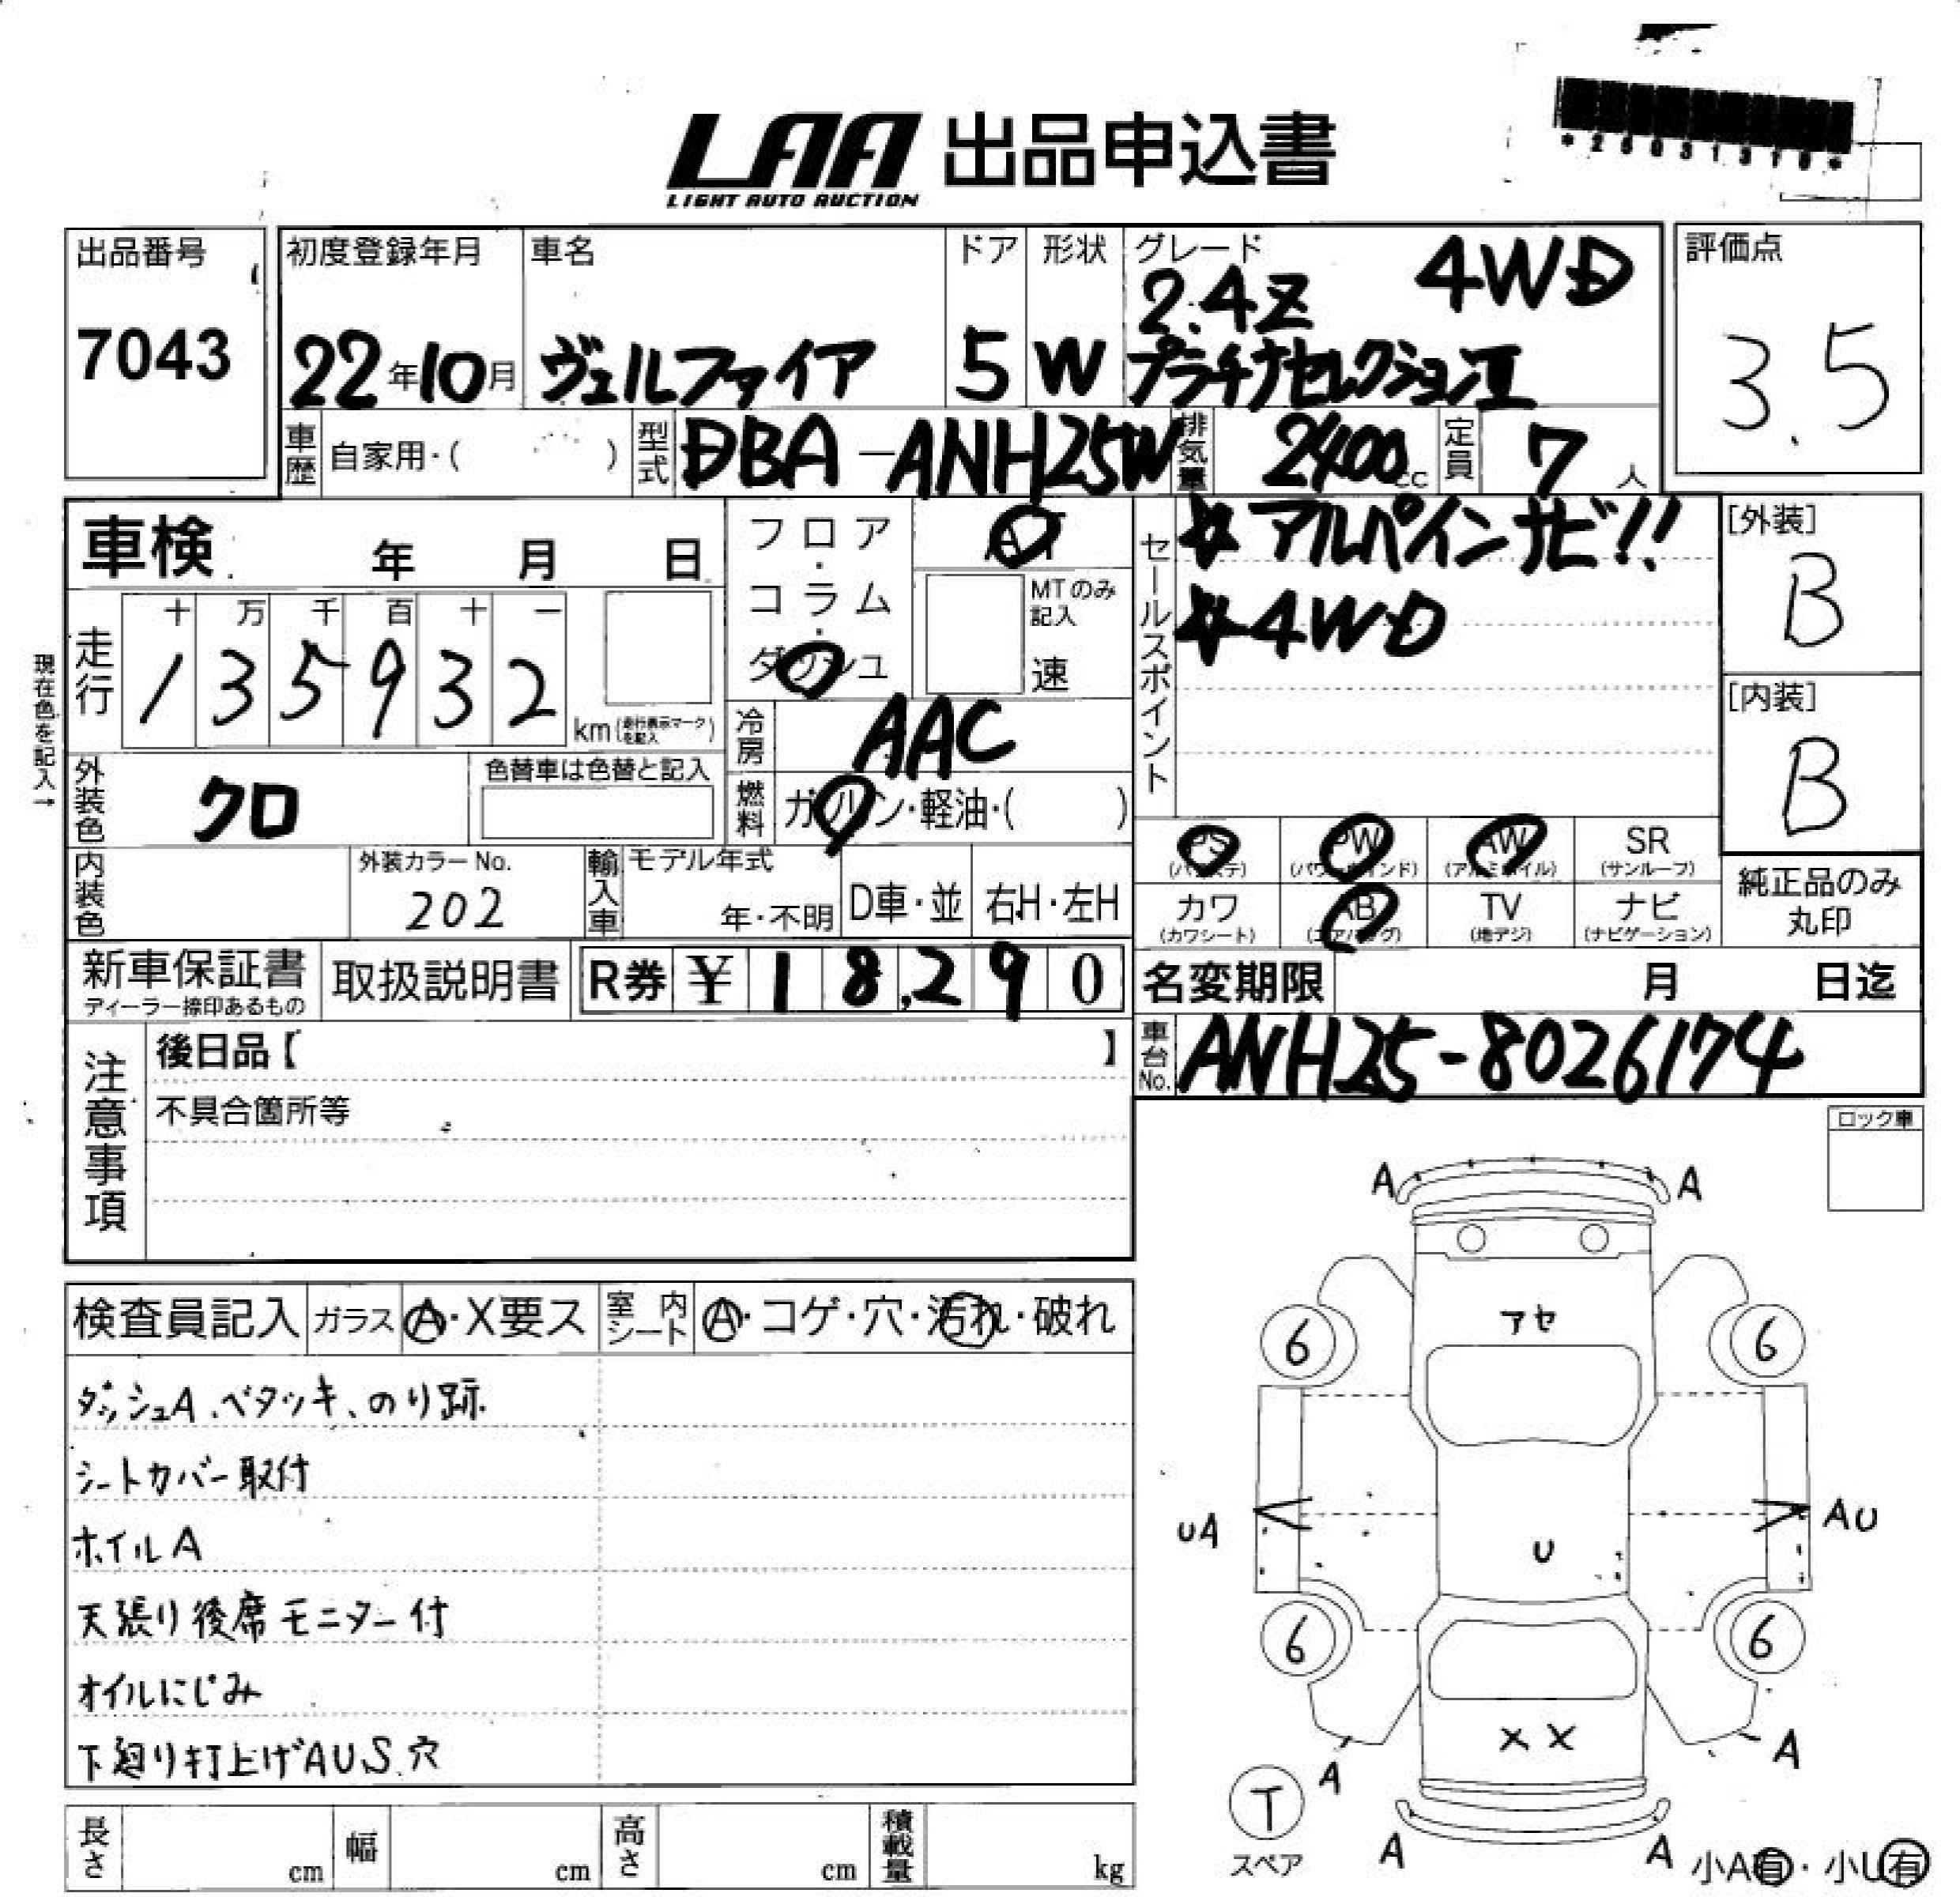 LAA 出品申込書
LIGHT AUTO AUCTION
*25031310*
出品番号
7043
初度登録年月
22年10月
車名
ヴェルファイア
ドア
5
形状
W
グレード
2.4Z 4WD
プラチナセレクションⅡ
評価点
3.5
車歴 自家用・( )
型式 DBA-ANH25W
排気量 2400cc
定員 7人
車検 年 月 日
フロア・コラム・ダッシュ
AT
MTのみ記入
速
セールスポイント
☆アルパインナビ!!
☆4WD
[外装]
B
[内装]
B
現在色を記入→
走行
十 万 千 百 十 一
1 3 5 9 3 2 km(走行表示マークを記入)
冷房 AAC
外装色 クロ
色替車は色替と記入
燃料 ガソリン・軽油・( )
PS
(パワステ)
PW
(パワーウインド)
AW
(アルミホイル)
SR
(サンルーフ)
内装色
外装カラーNo.
202
輸入車
モデル年式
年・不明
D車・並
右H・左H
カワ
(カワシート)
AB
(エアバッグ)
TV
(地デジ)
ナビ
(ナビゲーション)
純正品のみ丸印
新車保証書
ディーラー捺印あるもの
取扱説明書
R券 ¥ 18,290
名変期限 月 日迄
注意事項
後日品【 】
車台No. ANH25-8026174
不具合箇所等
ロック車
A A
検査員記入
ガラス A・X要ス
室内シート A・コゲ・穴・汚れ・破れ
アセ
6 6
ダッシュA、ベタツキ、のり跡
シートカバー取付
ホイルA
UA AU
U
天張り後席モニター付
6 6
オイルにじみ
下廻り打上げAU.S.穴
XX
A A
T
スペア
A A
長さ cm
幅 cm
高さ cm
積載量 kg
小A有・小U有